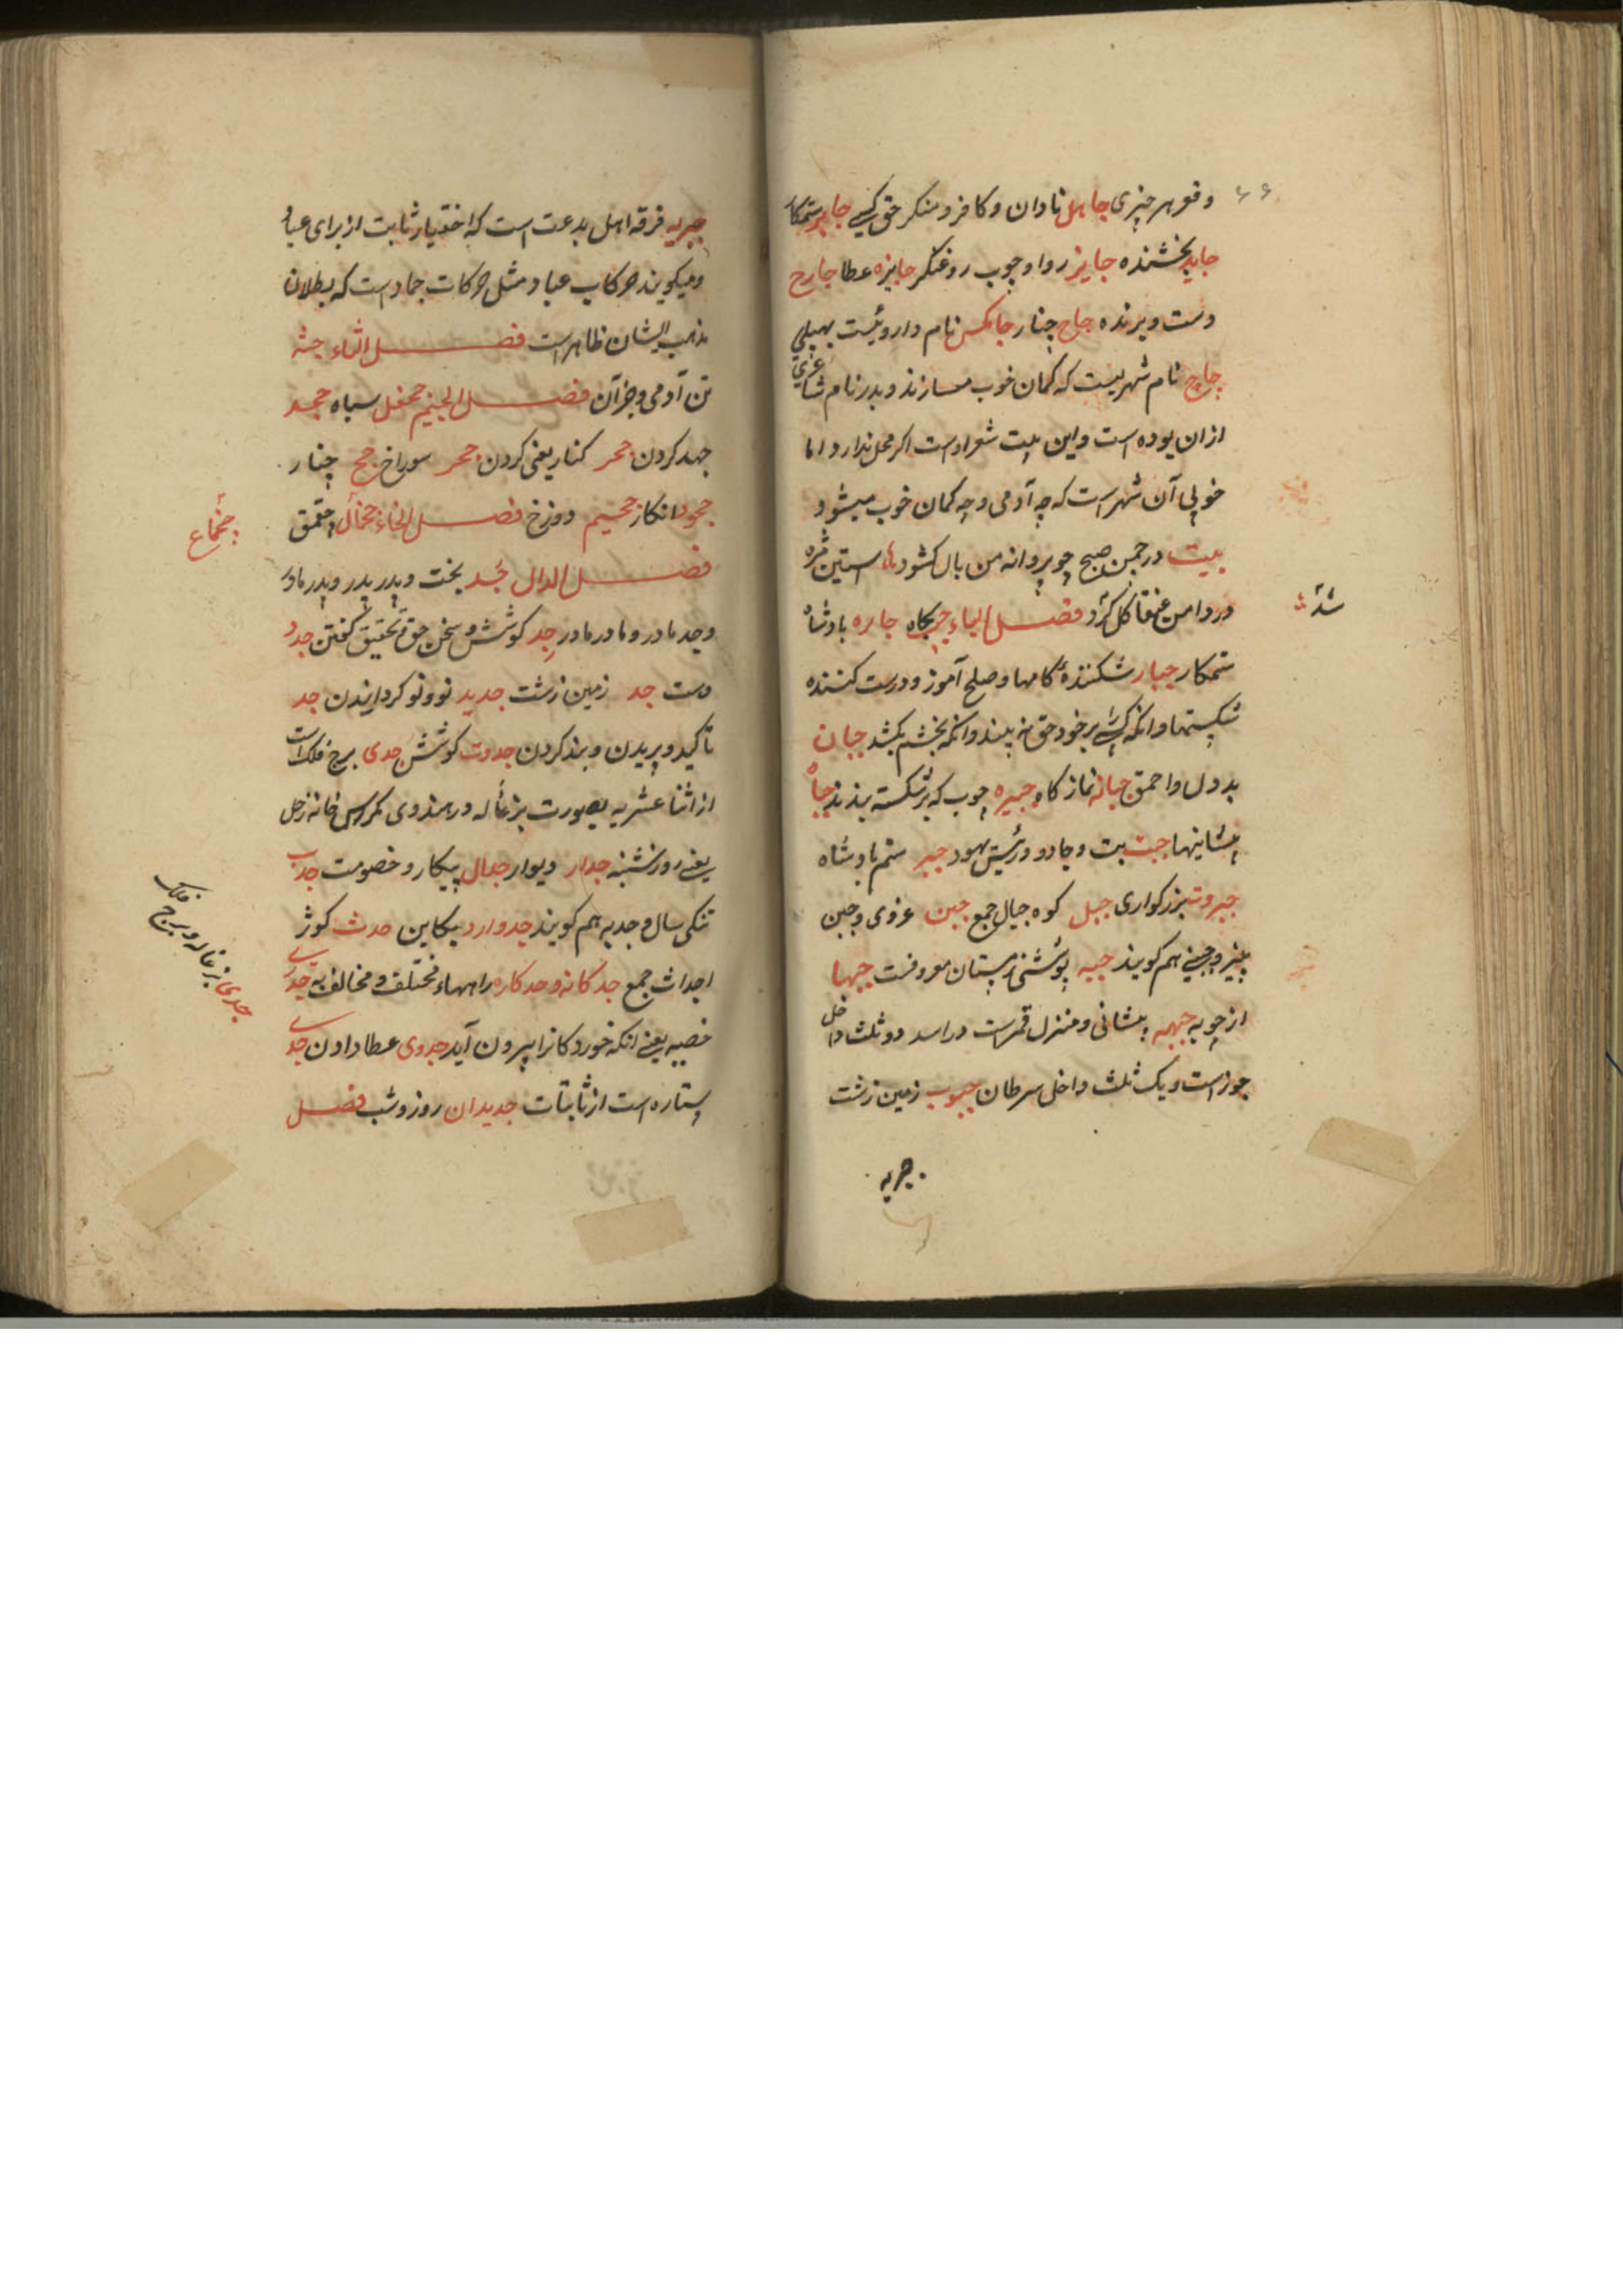 ۶۶
وقعر هر چیزی جاهل نادان و کافر و منکر حق کسی جابر ستمکار
جاید بخشنده جایز روا و چوب روغنکر جایزه عطا جارح
دست و برنده جاج چنار جاکس نام داروئیست بهیلی
جاج نام شهریست که کمان خوب میسازند و بدر نام شاعری
ازان بوده است و این بیت شعر اوست اکر محل ندارد اما
خوبی آن شهر است که چه آدمی و چه کمان خوب میشود
بیت در چمن صبح چو پروانه من بال کشود ها استین مژه
در دامن عنقا کل کرد فصل الباء جبکاه جابره بادشاه
شد
ستمکار جبار شکنندهٔ کامها و صلح آموز و درست کننده
شکستها و انکه کسی را بر خود حق نه بیند و انکه بخشم بکشد جبان
بددل و احمق جبانه نماز کاه جبیره چوب که بر شکسته بندند جباه
پیشانیها جبت بت و جادو و رئیس یهود جبر ستم بادشاه
جبروت بزرکواری جبل کوه جبال جمع جبن غروی و جبن
پنیر و جبنی هم کویند جبه پوششی زمستان معروفست جبها
از جوبه جبهه پیشانی و منزل قمر است در اسد دو ثلث داخل
جوزاست و یک ثلث داخل سرطان جبوب زمین زشت
جبریه
جبریه فرقه اهل بدعت است که اختیار ثابت از برای عباد
و میکویند حرکات عباد مثل حرکات جماد است که بطلان
مذهب ایشان ظاهر است فصل الثاء جثه
تن آدمی و جز آن فصل الجیم جحفل سپاه جحد
جهد کردن جحر کنار یعنی کردن جحر سوراخ جج چنار
جحود انکار جحیم دوزخ فصل الخاء جخال احمق
جخماع
فصل الدال جد بخت و پدر پدر و پدر مادر
و جد مادر و مادر مادر جد کوشش و سخن حق و تحقیق کفتن جدد
دست جد زمین زشت جدید نو و نو کردانیدن جد
تاکید و بریدن و بند کردن جدوت کوشش جدی برج فلک است
از اثنا عشریه بصورت بزغاله در هندوی مکرس خانه زحل
یعنی روز شنبه جدار دیوار جدال پیکار و خصومت جدب
تنکی سال و جدبه هم کویند جدوارد بیکاین جدث کور
جدی بزغاله و برج فلک
اجداث جمع جدکانه و جدکاره راهها مختلف و مخالف به جدری
خصبه یعنی انکه خوردکانرا بیرون آید جدوی عطا دادن جدی
ستاره است از ثابتات جدیدان روز و شب فصل